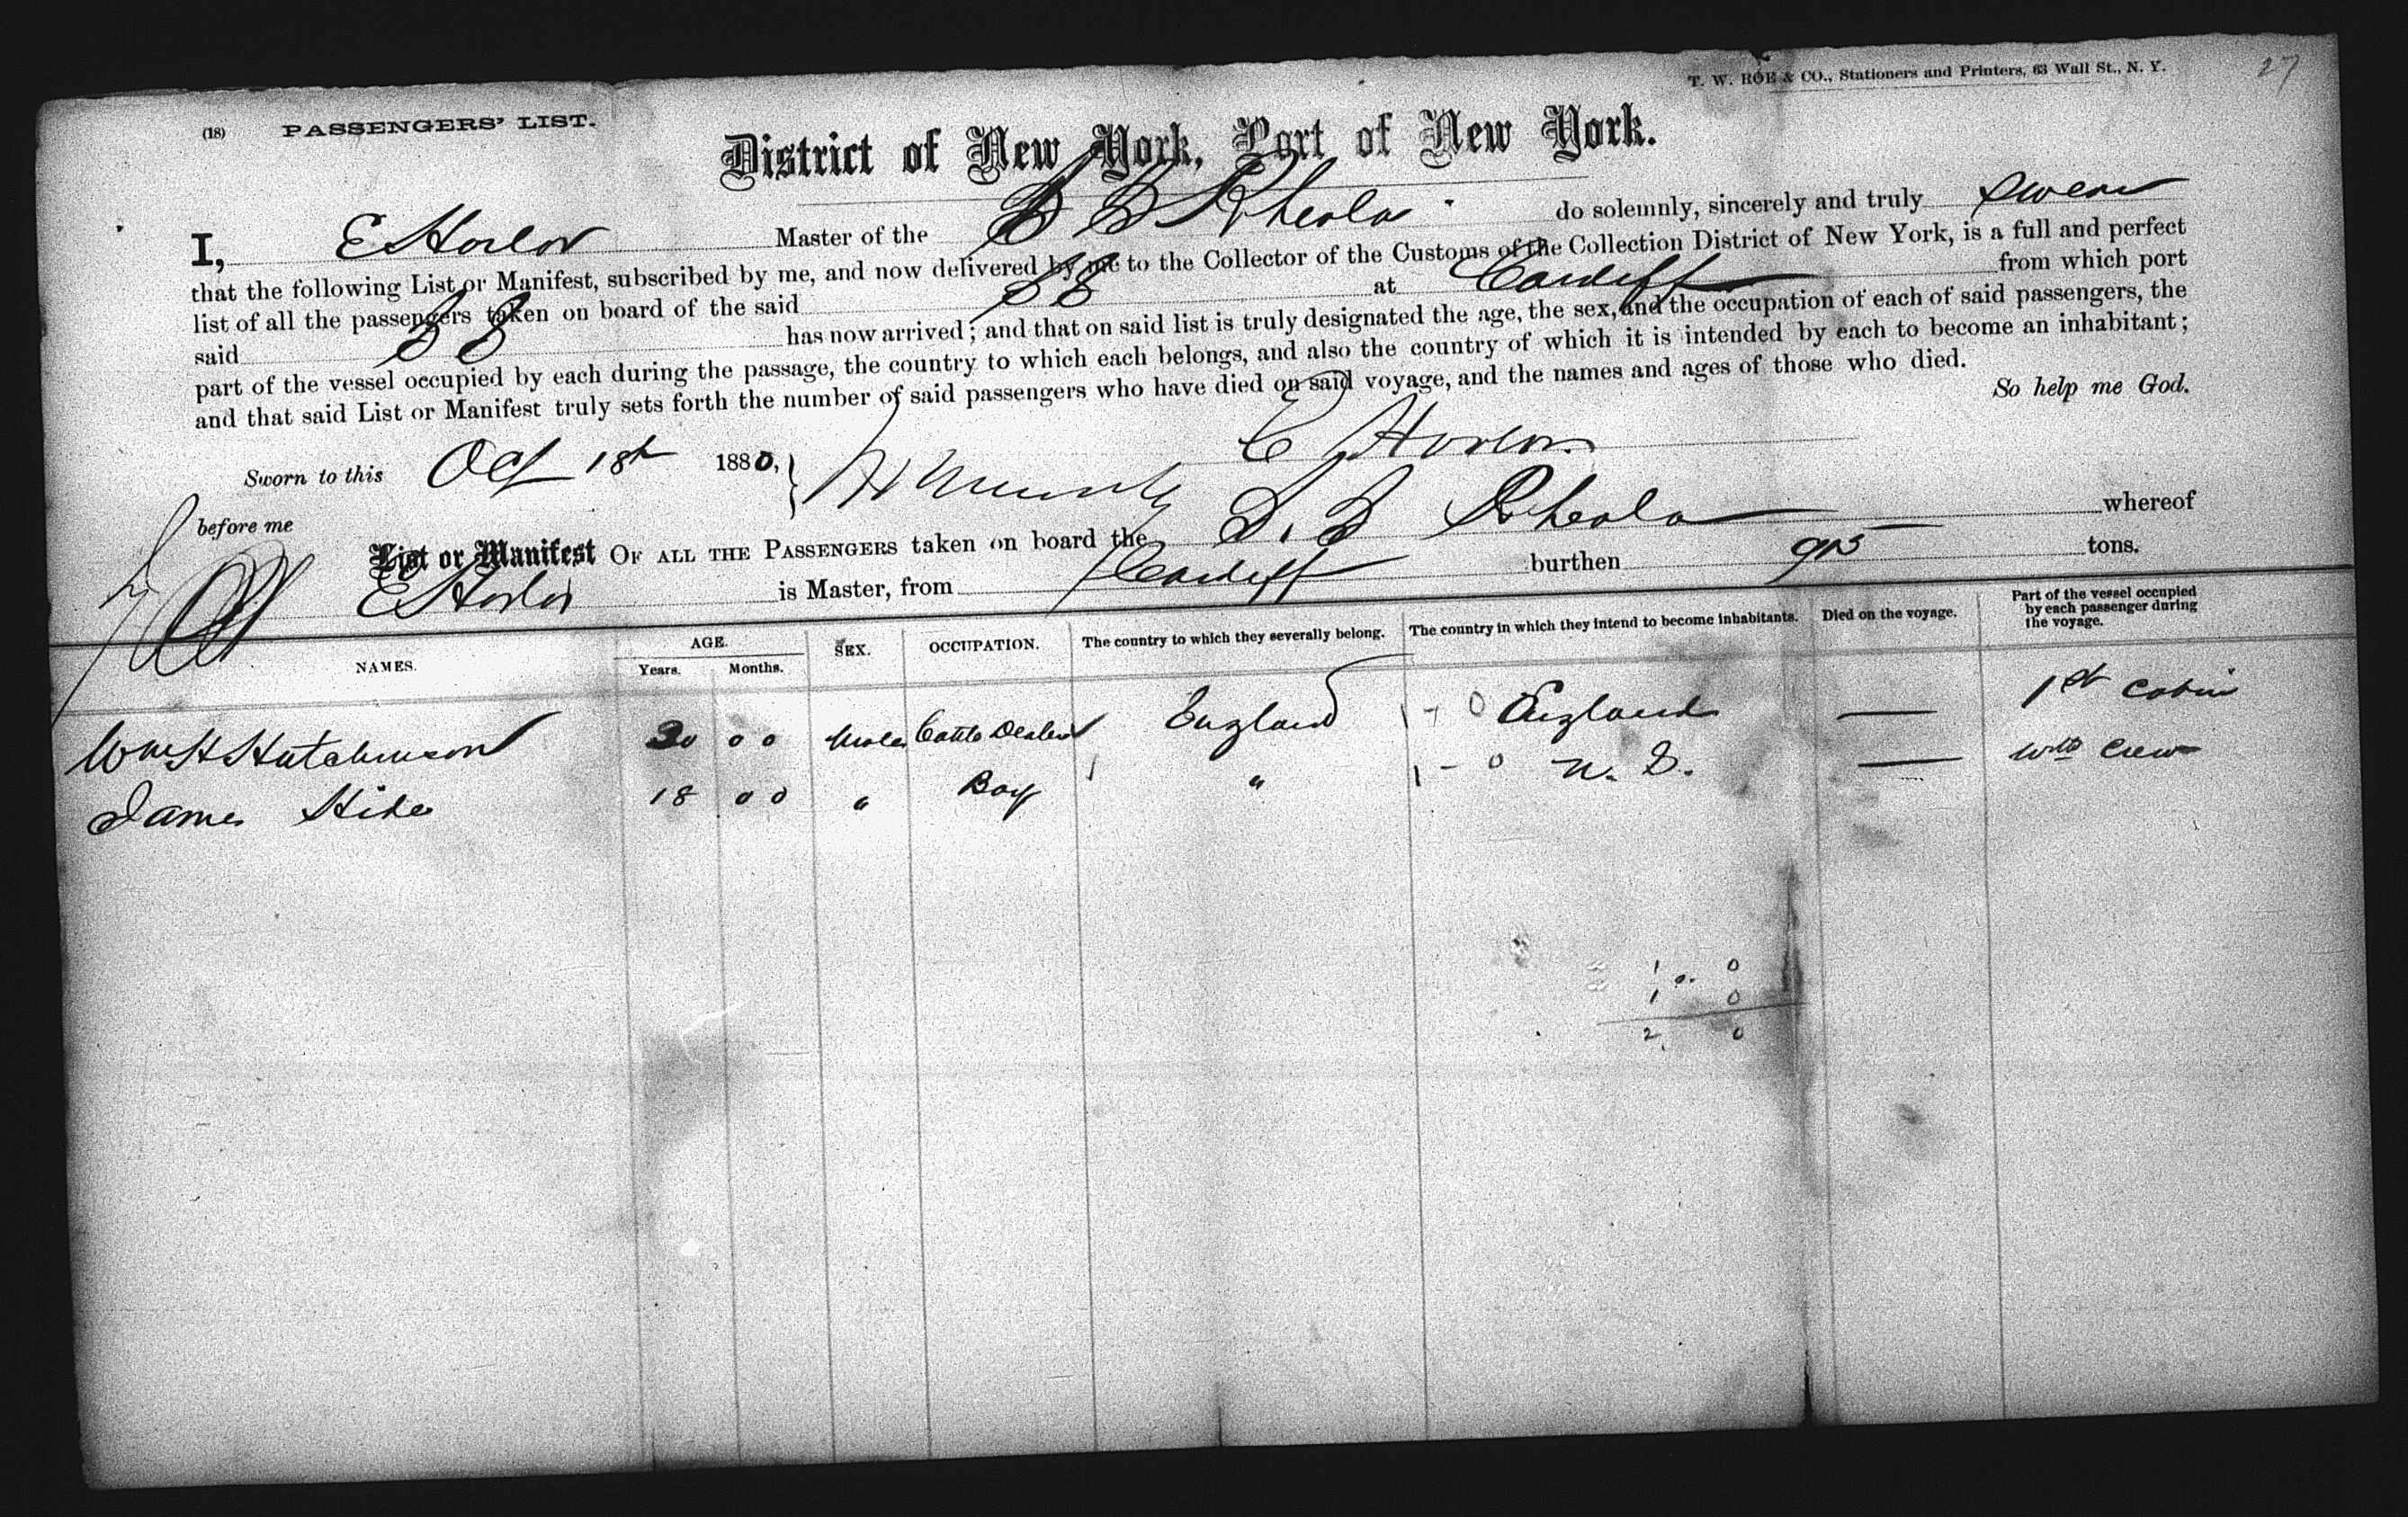 T. W. ROE & CO., Stationers and Printers, 63 Wall St., N. Y.
27
(18) PASSENGERS' LIST.
District of New York, Port of New York.
I, E Horlor Master of the S S Rheola do solemnly, sincerely and truly swear
that the following List or Manifest, subscribed by me, and now delivered by me to the Collector of the Customs of the Collection District of New York, is a full and perfect
list of all the passengers taken on board of the said SS at Cardiff from which port
said SS has now arrived; and that on said list is truly designated the age, the sex, and the occupation of each of said passengers, the
part of the vessel occupied by each during the passage, the country to which each belongs, and also the country of which it is intended by each to become an inhabitant;
and that said List or Manifest truly sets forth the number of said passengers who have died on said voyage, and the names and ages of those who died.
So help me God.
Sworn to this Oct 18th 1880, E Horlor
before me
List or Manifest OF ALL THE PASSENGERS taken on board the S.S Rheola whereof
E Horlor is Master, from Cardiff burthen 915 tons.
NAMES. AGE. Years. Months. SEX. OCCUPATION. The country to which they severally belong. The country in which they intend to become inhabitants. Died on the voyage. Part of the vessel occupied by each passenger during the voyage.
Wm H Hutchinson 30 00 Male Cattle Dealer England 1 - 0 England — 1st Cabin
James Hide 18 00 " Boy " 1 - 0 U. S. — With Crew
1 0
1 0
2 0